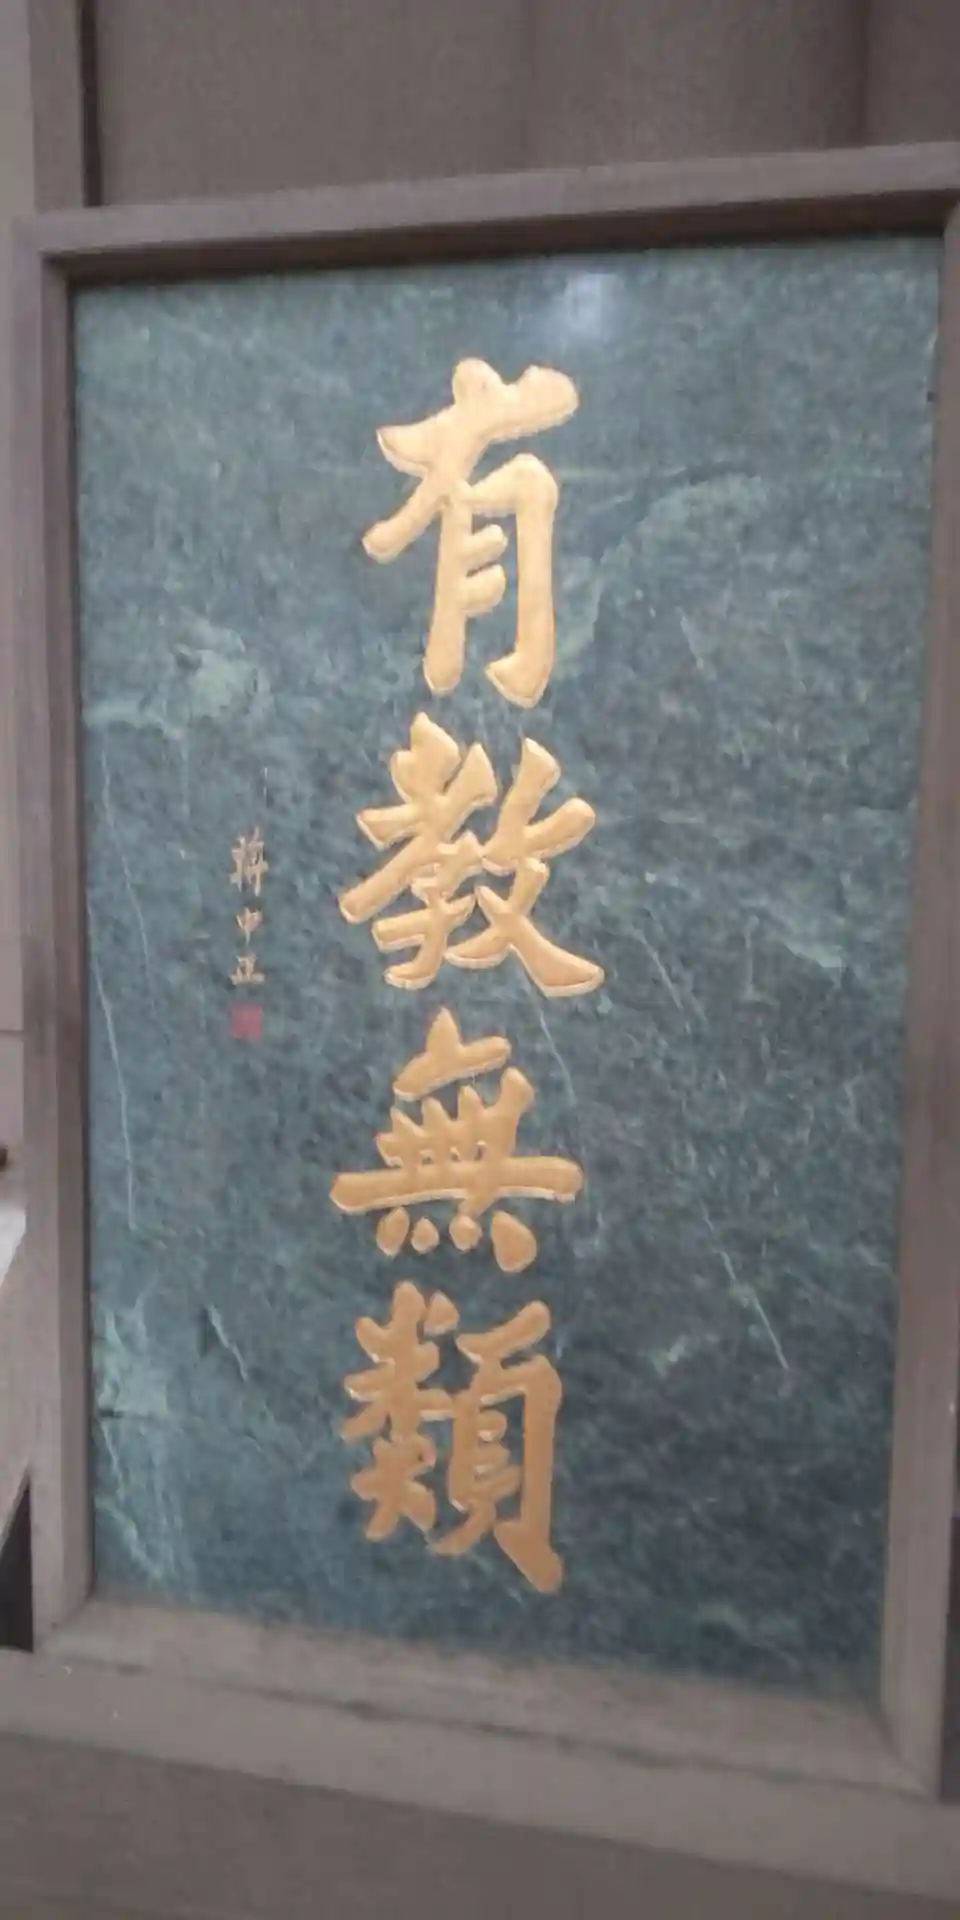 有教無類
蔣中正